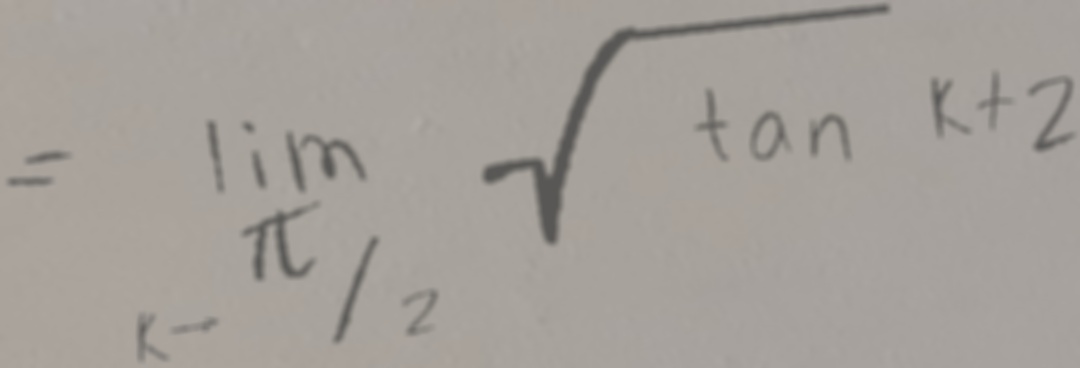 = lim π/2 √ tan k+2
k→